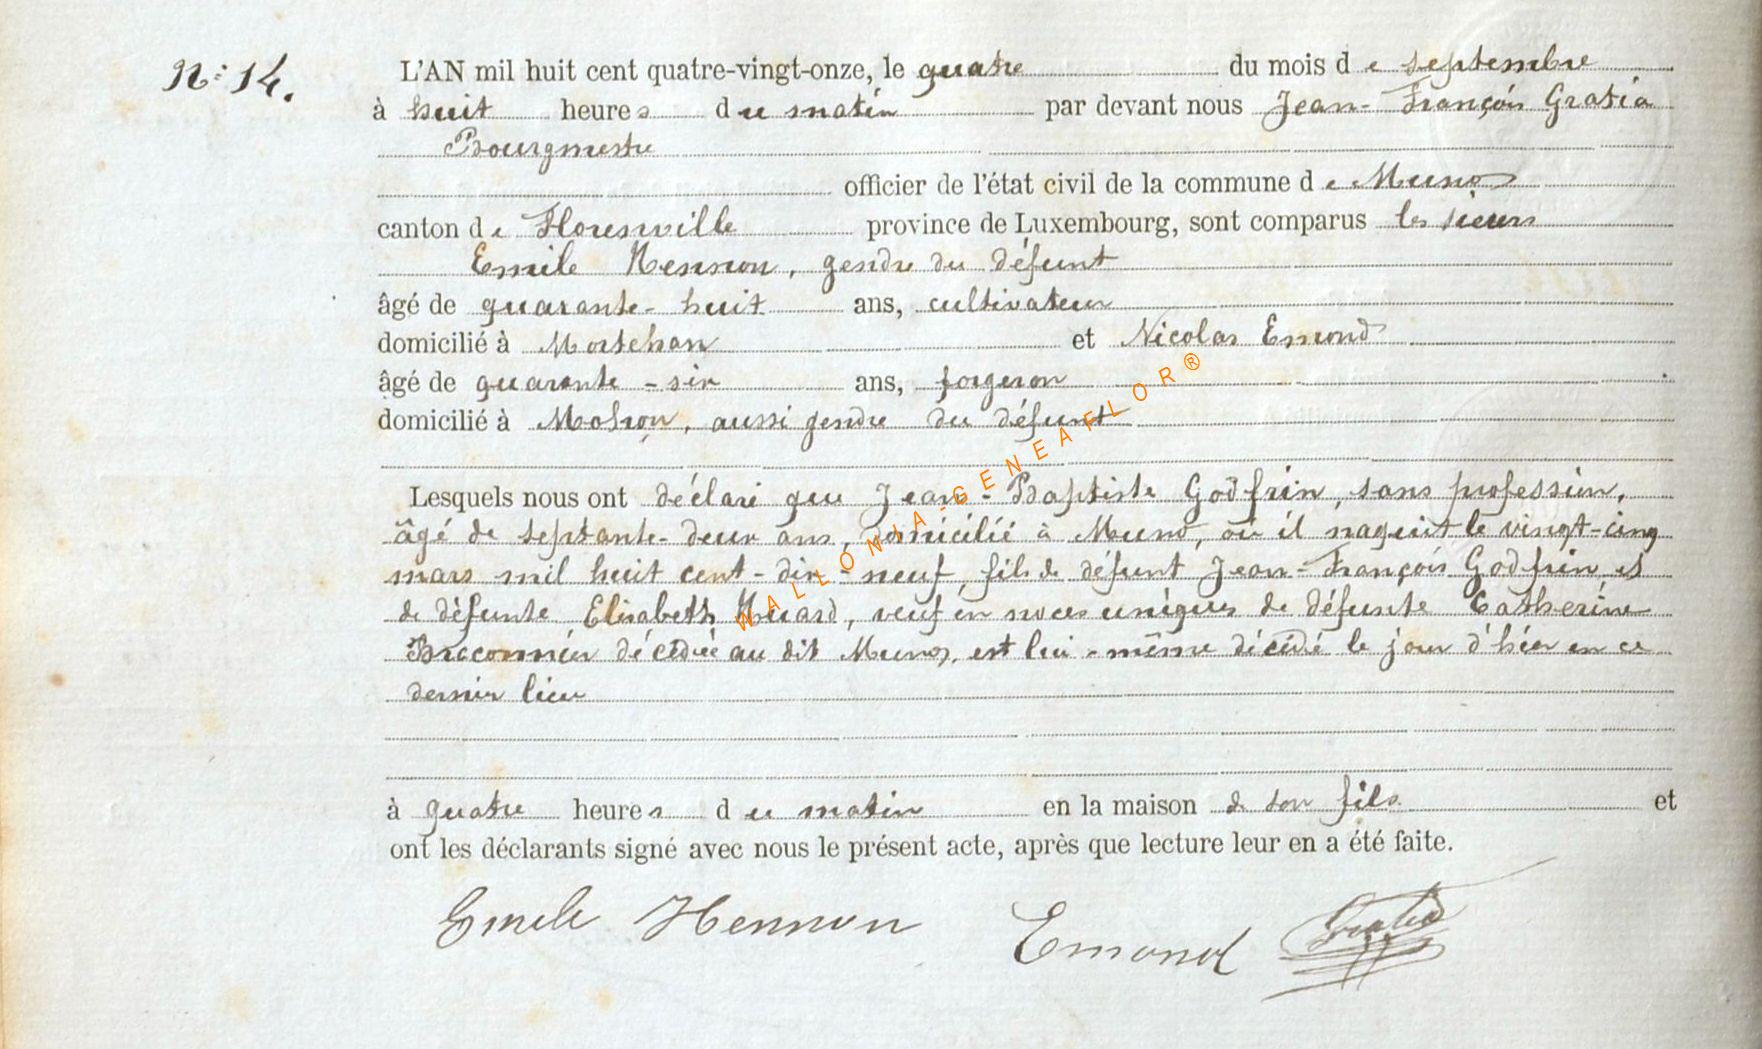 N: 14.
L'AN mil huit cent quatre-vingt-onze, le quatre du mois de septembre
à huit heures du matin par devant nous Jean-François Gratia
Bourgmestre
officier de l'état civil de la commune de Muno
canton de Florenville province de Luxembourg, sont comparus les sieurs
Emile Hennon, gendre du défunt
âgé de quarante-huit ans, cultivateur
domicilié à Mortehan et Nicolas Emond
âgé de quarante-six ans, forgeron
domicilié à Mohon, aussi gendre du défunt
Lesquels nous ont déclaré que Jean-Baptiste Godfrin, sans profession,
âgé de septante-deux ans, domicilié à Muno, où il naquit le vingt-cinq
mars mil huit cent-dix-neuf, fils de défunt Jean-François Godfrin et
de défunte Elisabeth Huard, veuf en noces uniques de défunte Catherine
Braconnier décédée au dit Muno, est lui-même décédé le jour d'hier en ce
dernier lieu
à quatre heures du matin en la maison de son fils et
ont les déclarants signé avec nous le présent acte, après que lecture leur en a été faite.
Emile Hennon Emond Gratia
WALLONIA-GENEAFLOR®